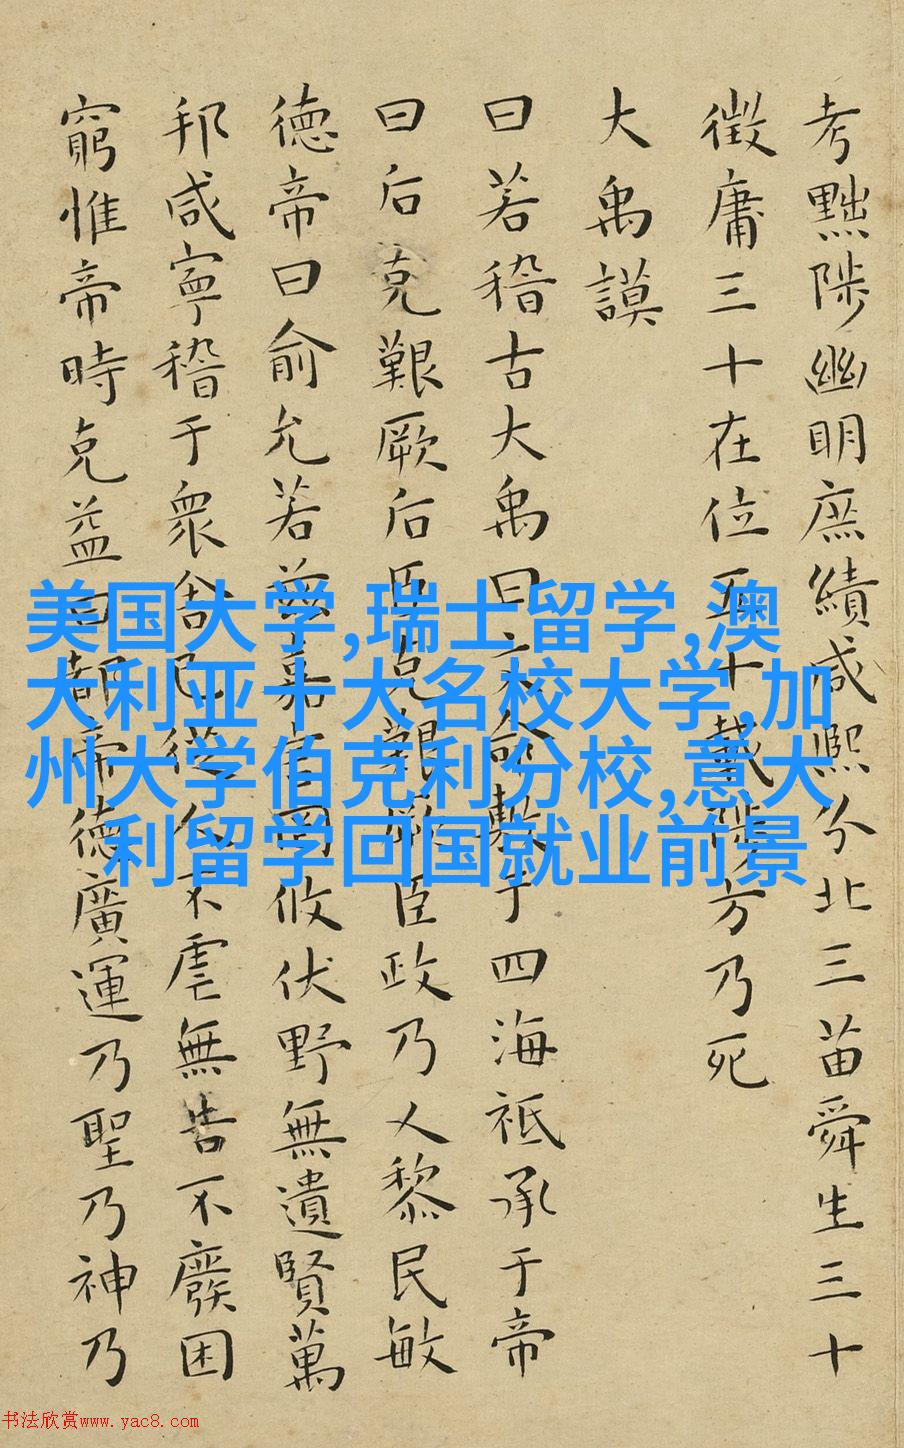 考黜陟幽明庶績咸熙分北三苗舜生三十
徵庸三十在位五十載陟方乃死
大禹謨
曰若稽古大禹曰文命敷于四海祗承于帝
曰后克艱厥后臣克艱厥臣政乃乂黎民敏
德帝曰俞允若茲嘉言罔攸伏野無遺賢萬
邦咸寧稽于衆舍己從人不虐無告不廢困
窮惟帝時克益曰都帝德廣運乃聖乃神乃
美国大学,瑞士留学,澳
大利亚十大名校大学,加
州大学伯克利分校,意大
利留学回国就业前景
书法欣赏www.yac8.com